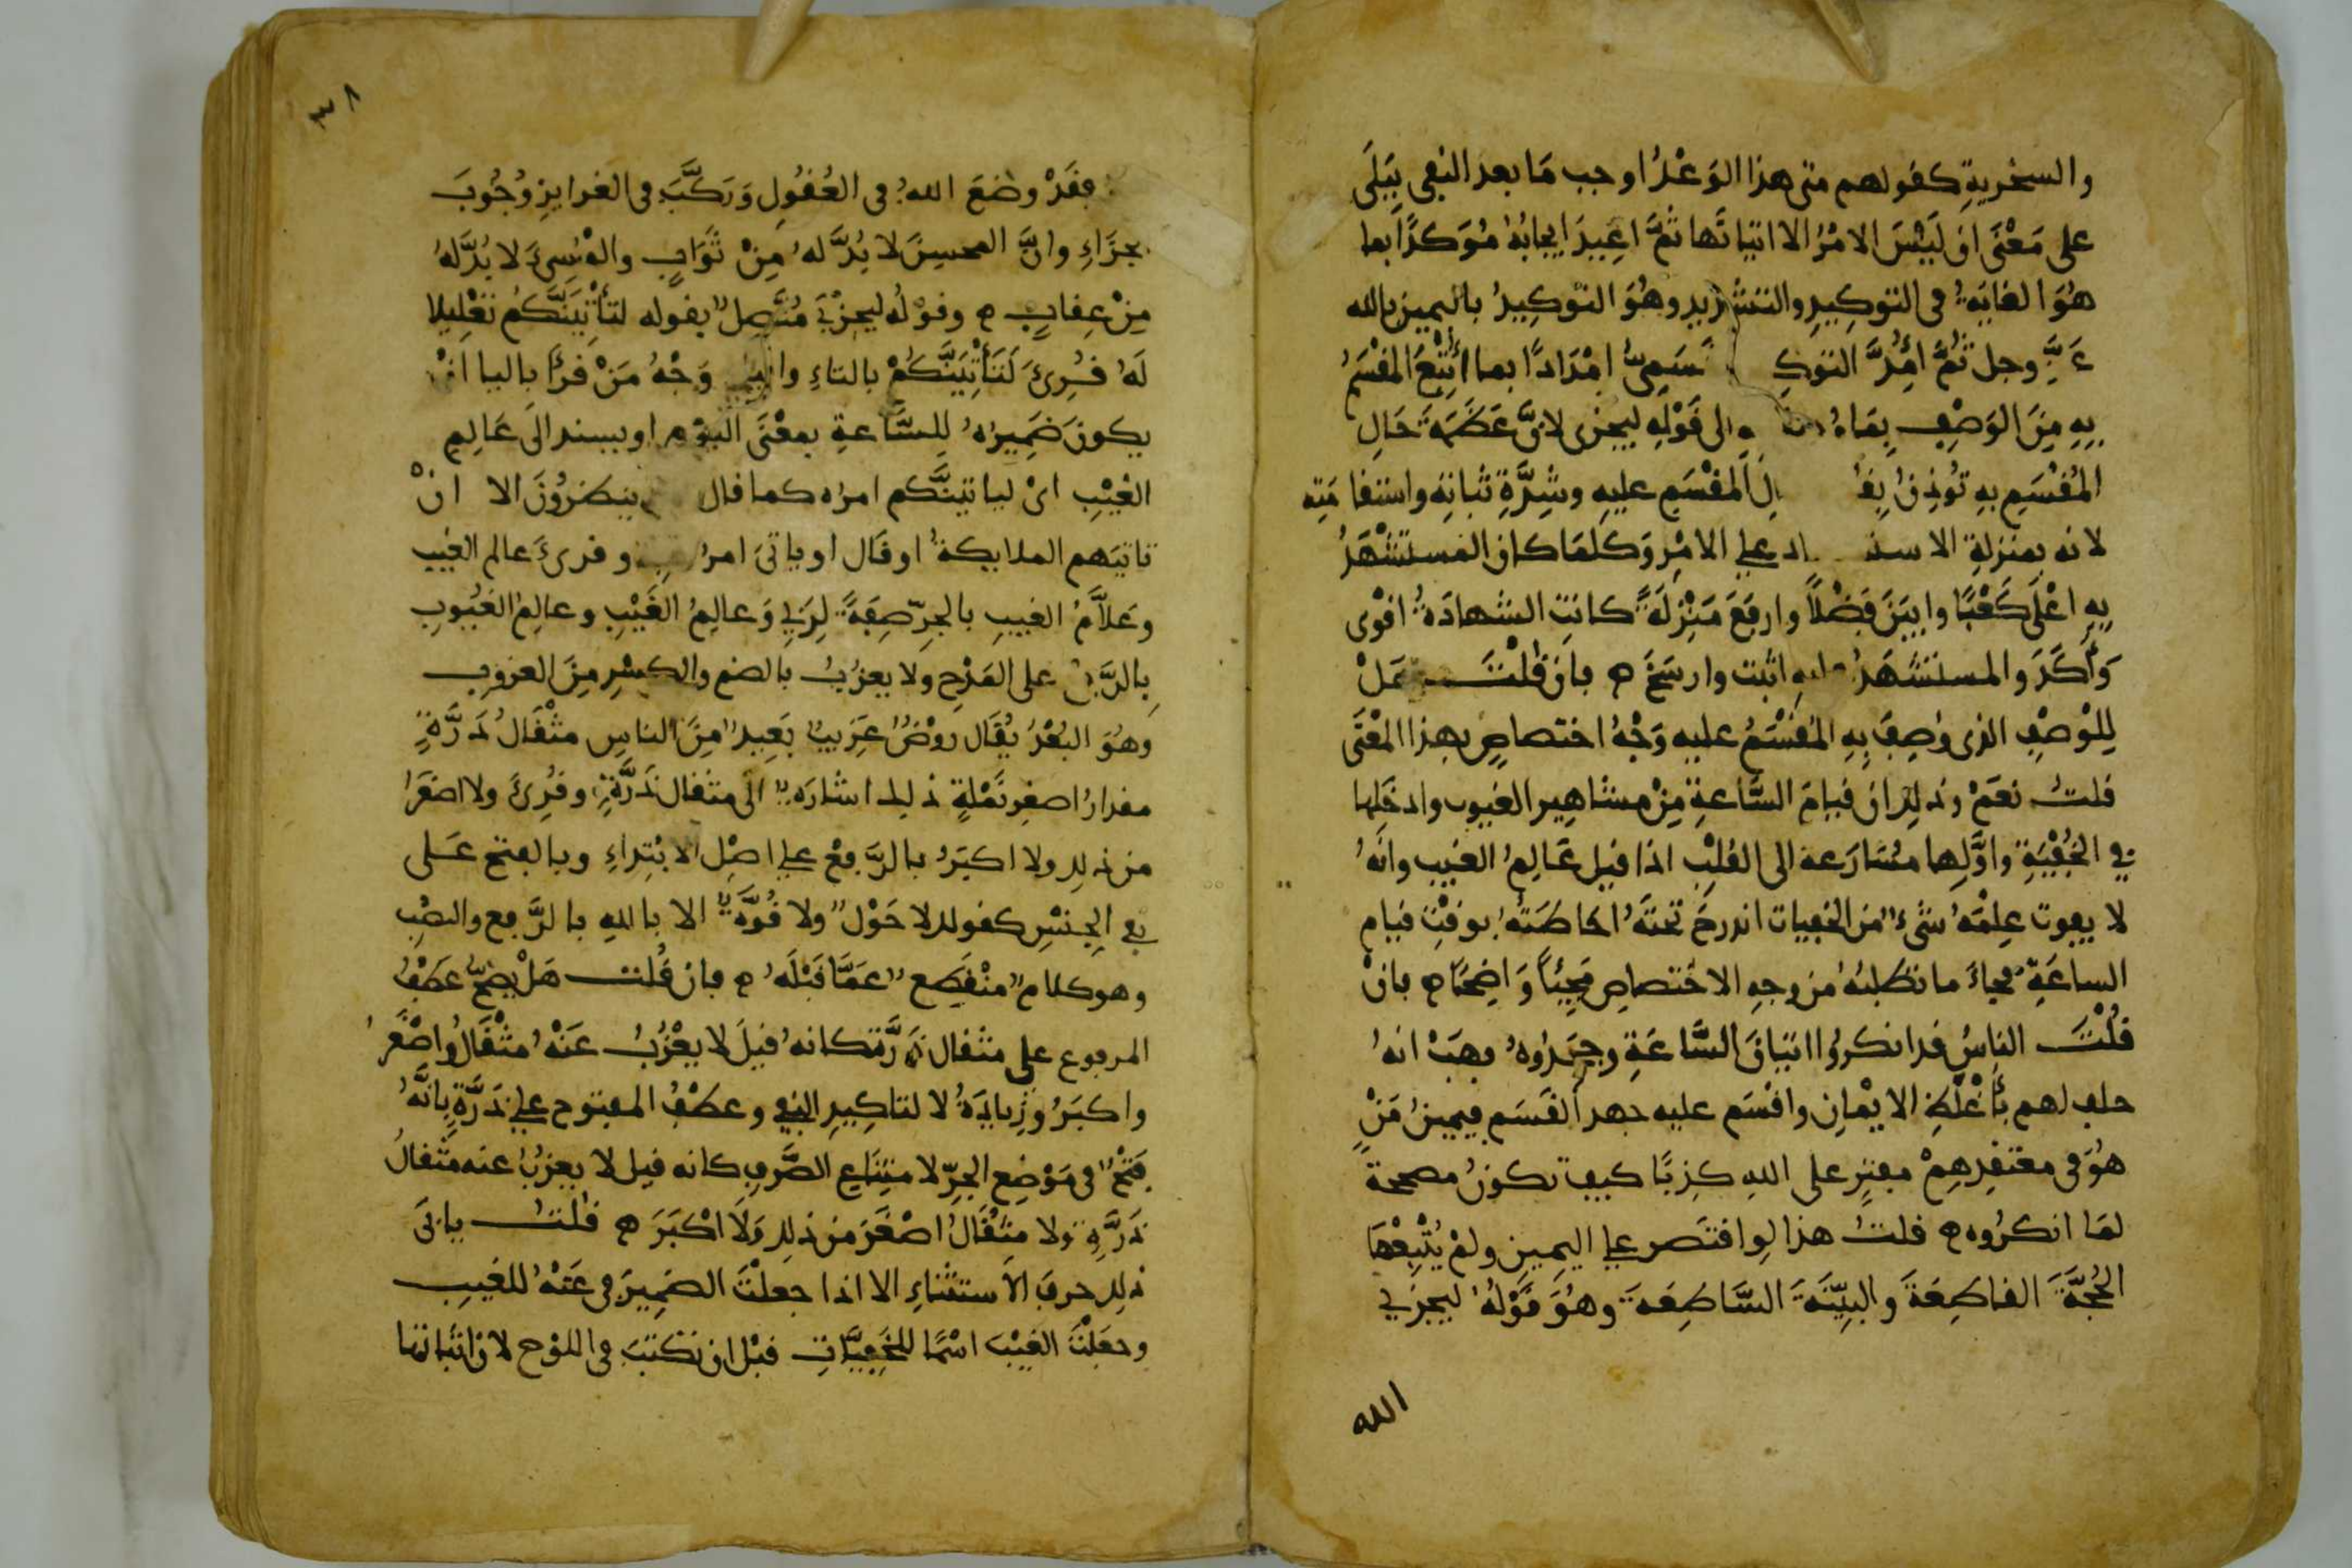 والسخرية كقولهم متى هذا الوَعْدُ اوجب مَا بعد النفى بِبَلَى
على مَعْنَى ان لَيْسَ الامْرُ الا اتيانَها ثُمَّ اعِيدَ ايجابُهُ مُوَكدًا بما
هُوَ الغايَةُ فى التوكِيدِ والتشديدِ وهُوَ التوْكِيدُ باليمين بالله
عَزَّ وجل ثُمَّ امُِدَّ التوكِـ ـسَمِىُّ امْدَادًا بما أُتْبِعَ المُقْسَمُ
بِهِ مِنَ الوَصْفِ بِمَا الى قَوْلِهِ ليجزى لانَّ عَظَمَةَ حَالِ
المُقْسَمِ بهِ تُوذِنُ بِقُـ ـالِ المُقْسَمِ عليهِ وشِدَّةِ ثباتِهِ واستقامَتِه
لانه بمنزلةِ الاستـ ـاد على الامْرِ وَكلمَا كان المستشْهَدُ
بِهِ اعْلَى كَعْبًا وابيَنَ فَضْلًا وارفَعَ مَنْزِلَةً كانتِ الشهادَةُ اقْوى
وَأكَدَ والمستشْهَدُ عليهِ اثبت وارسَخَ ه فان قُلْتَ هَلْ
لِلْوَصْفِ الذى وُصِفَ بِهِ المُقْسَمُ عليه وَجْهُ اختصاصٍ بهذا المَعْنَى
قلتُ نعَمْ وذلك ان قيامَ السَّاعةِ مِنْ مشاهِيرِ الغيوب وادخَلِها
فى الخُفْيَةِ واوَّلِها مُسَارَعة الى القَلْبِ اذا قيل عَالِمُ الغيب وانَّهُ
لا يفوت عِلْمَهُ شىءٌ من الخفيات اندرجَ تحتَهُ احاطَتُهُ بوقْتِ قيامِ
الساعَةِ فجاءَ ما تطلبُهُ من وجهِ الاختصاصِ مَجِيئًا وَاضِحًا ه فانْ
قُلْتَ الناسُ قد انكرُوا اتيانَ السَّاعَةِ وجَحَدُوهُ فهَبْ انهُ
حلف لهم بأغْلَظِ الايْمانِ واقْسَم عليه جهد القَسَم فيمينُ مَنْ
هُوَ فى معتقدِهِمْ مفترٍ على اللهِ كَذِبًا كيف تكونُ مصححةً
لمَا انكرُوه ه قلتُ هذا لوِ اقتَصر على اليمِينِ ولمْ يُتْبِعْهَا
الحُجَّةَ القاطِعَةَ والبيِّنَةَ السَّاطِعَةَ وهُوَ قَوْلُهُ ليجزِىَ
الله
٣٨
فقَدْ وضَعَ اللهُ فى العُقُولِ وَرَكَّبَ فى الغرايِزِ وُجُوبَ
الجزَاءِ وانَّ المحسِنَ لا بُدَّ لهُ مِنْ ثَوَابٍ والمُسِىءَ لا بُدَّ لهُ
مِنْ عِقابٍ ه وقوْلُه ليجزِىَ مُتَّصِلٌ بقوله لتأتِيَنَّكُم تَعْلِيلا
لَهُ قُرِئَ لَتَأتِيَنَّكُمْ بالتاءِ واليا وَجْهُ مَنْ قرأَ باليا انْ
يكونَ ضَمِيرُهُ لِلسَّاعةِ بمعْنَى اليوْمِ او يسند الَى عَالِمِ
الغَيْبِ اىْ لياتيَنَّكم امره كما قال ينظرُونَ الا انْ
تاتيَهم الملايكةُ او قَال او ياتىَ امرُ وقرئَ عالم الغيب
وعَلاَّمِ الغيبِ بالجرِّ صِفَةً لِرَبِى وَعالِمُ الغَيْبِ وعالِمُ الغُيُوبِ
بِالرَّفعِ على المَدْحِ ولا يعزُبُ بالضم والكسْرِ مِنَ العزوبِ
وهُوَ البُعْدُ يُقَال روْضٌ عَزِيبٌ بَعِيدٌ مِنَ الناسِ مثْقَالُ ذَرَّةٍ
مقدارُ اصغرِ نَمْلةٍ ذلك اشارَةٌ الَى مثقال ذَرَّةٍ وقُرِئَ ولا اصْغَرُ
من ذلك ولا اكبَرُ بالرَّفعْ على اصْلِ الابْتِداءِ وبالفتح عَلى
نفى الجِنْسِ كقولك لا حَوْلٌ ولا قُوَّةٌ الا باللهِ بالرَّفع والنصْبِ
وهو كلامٌ منْقَطِعٌ عَمَّا قَبْلَهُ ه فان قُلت هَلْ يصِحُّ عَطْفُ
المرفوع على مثقال ذَرَّة كانهُ قيلَ لا يعْزُبُ عَنْهُ مثْقَالُ واصْغَرُ
واكبَرُ وزِيادَةُ لا لتاكِيدِ النفى وعطفُ المفتوح على ذَرَّةٍ بِانَّهُ
فَتْحٌ فى مَوْضِعِ الجرِّ لامتِنَاعِ الصَّرفِ كانه قيل لا يعزبُ عنه مثْقالُ
ذَرَّةٍ ولا مِثْقَالُ اصْغَرَ من ذلك وَلَا اكْبَرَ ه قلتُ يابَى
ذلك حرفُ الاستثناءِ الا اذا جعلْتَ الضَمِيرَ فى عَنْهُ للغيبِ
وجعَلْتَ الغَيْبَ اسْمًا للخَفِيَّاتِ قبْل ان تكتَبَ فى اللوْح لان اثباتَها